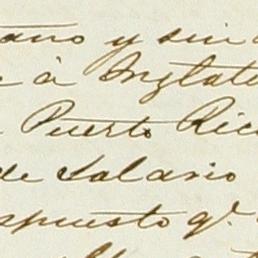 tano y sin
à Inglate
Puerto Rico
de Salario
spuesto q.